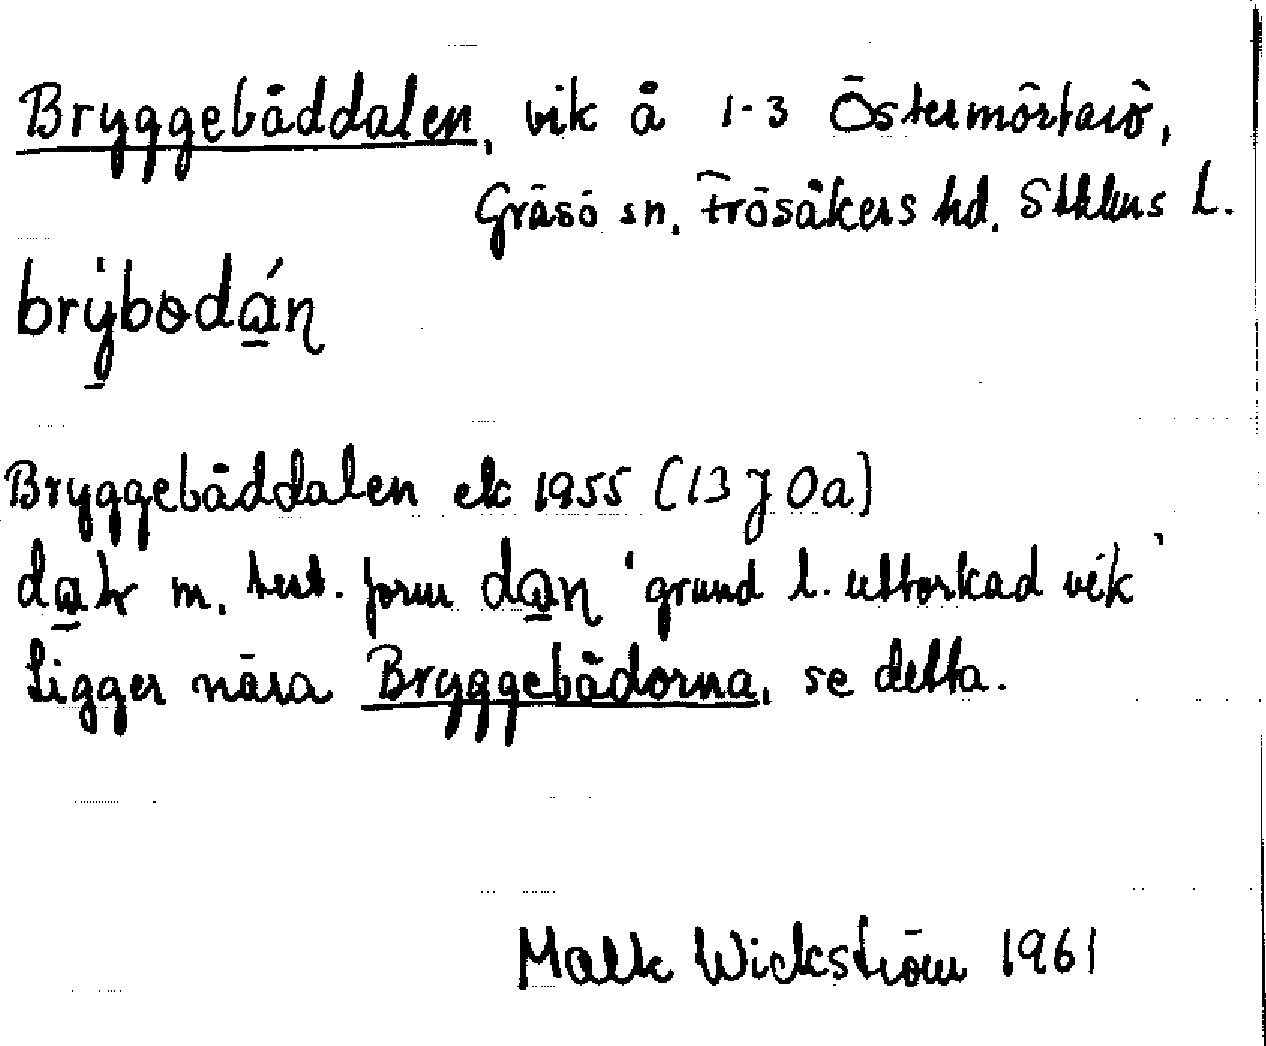 Bryggebåddalen, vik å 1-3 Östermörtarö,
Gräsö sn. Frösåkers hd. Sthlms l.
brýbodán
Bryggebåddalen ek 1955 (13 J 0a)
m. best. form dan 'grund l. uttorkad vik'
Ligger nära Bryggebådorna, se detta.
Wickström 1961